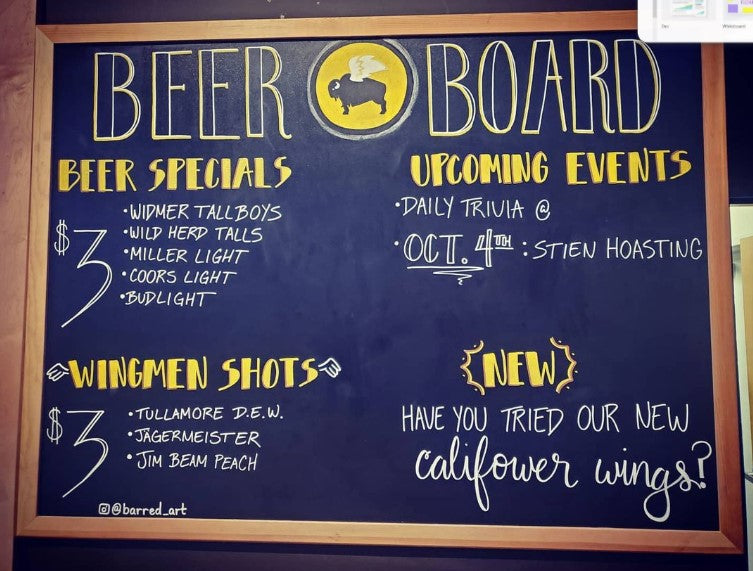 BEER BOARD
BEER SPECIALS
$3
•WIDMER TALLBOYS
•WILD HERD TALLS
•MILLER LIGHT
•COORS LIGHT
•BUDLIGHT
WINGMEN SHOTS
$3
•TULLAMORE D.E.W.
•JÄGERMEISTER
•JIM BEAM PEACH
@barred_art
UPCOMING EVENTS
•DAILY TRIVIA @
•OCT. 4TH : STIEN HOASTING
NEW
HAVE YOU TRIED OUR NEW
califower wings?